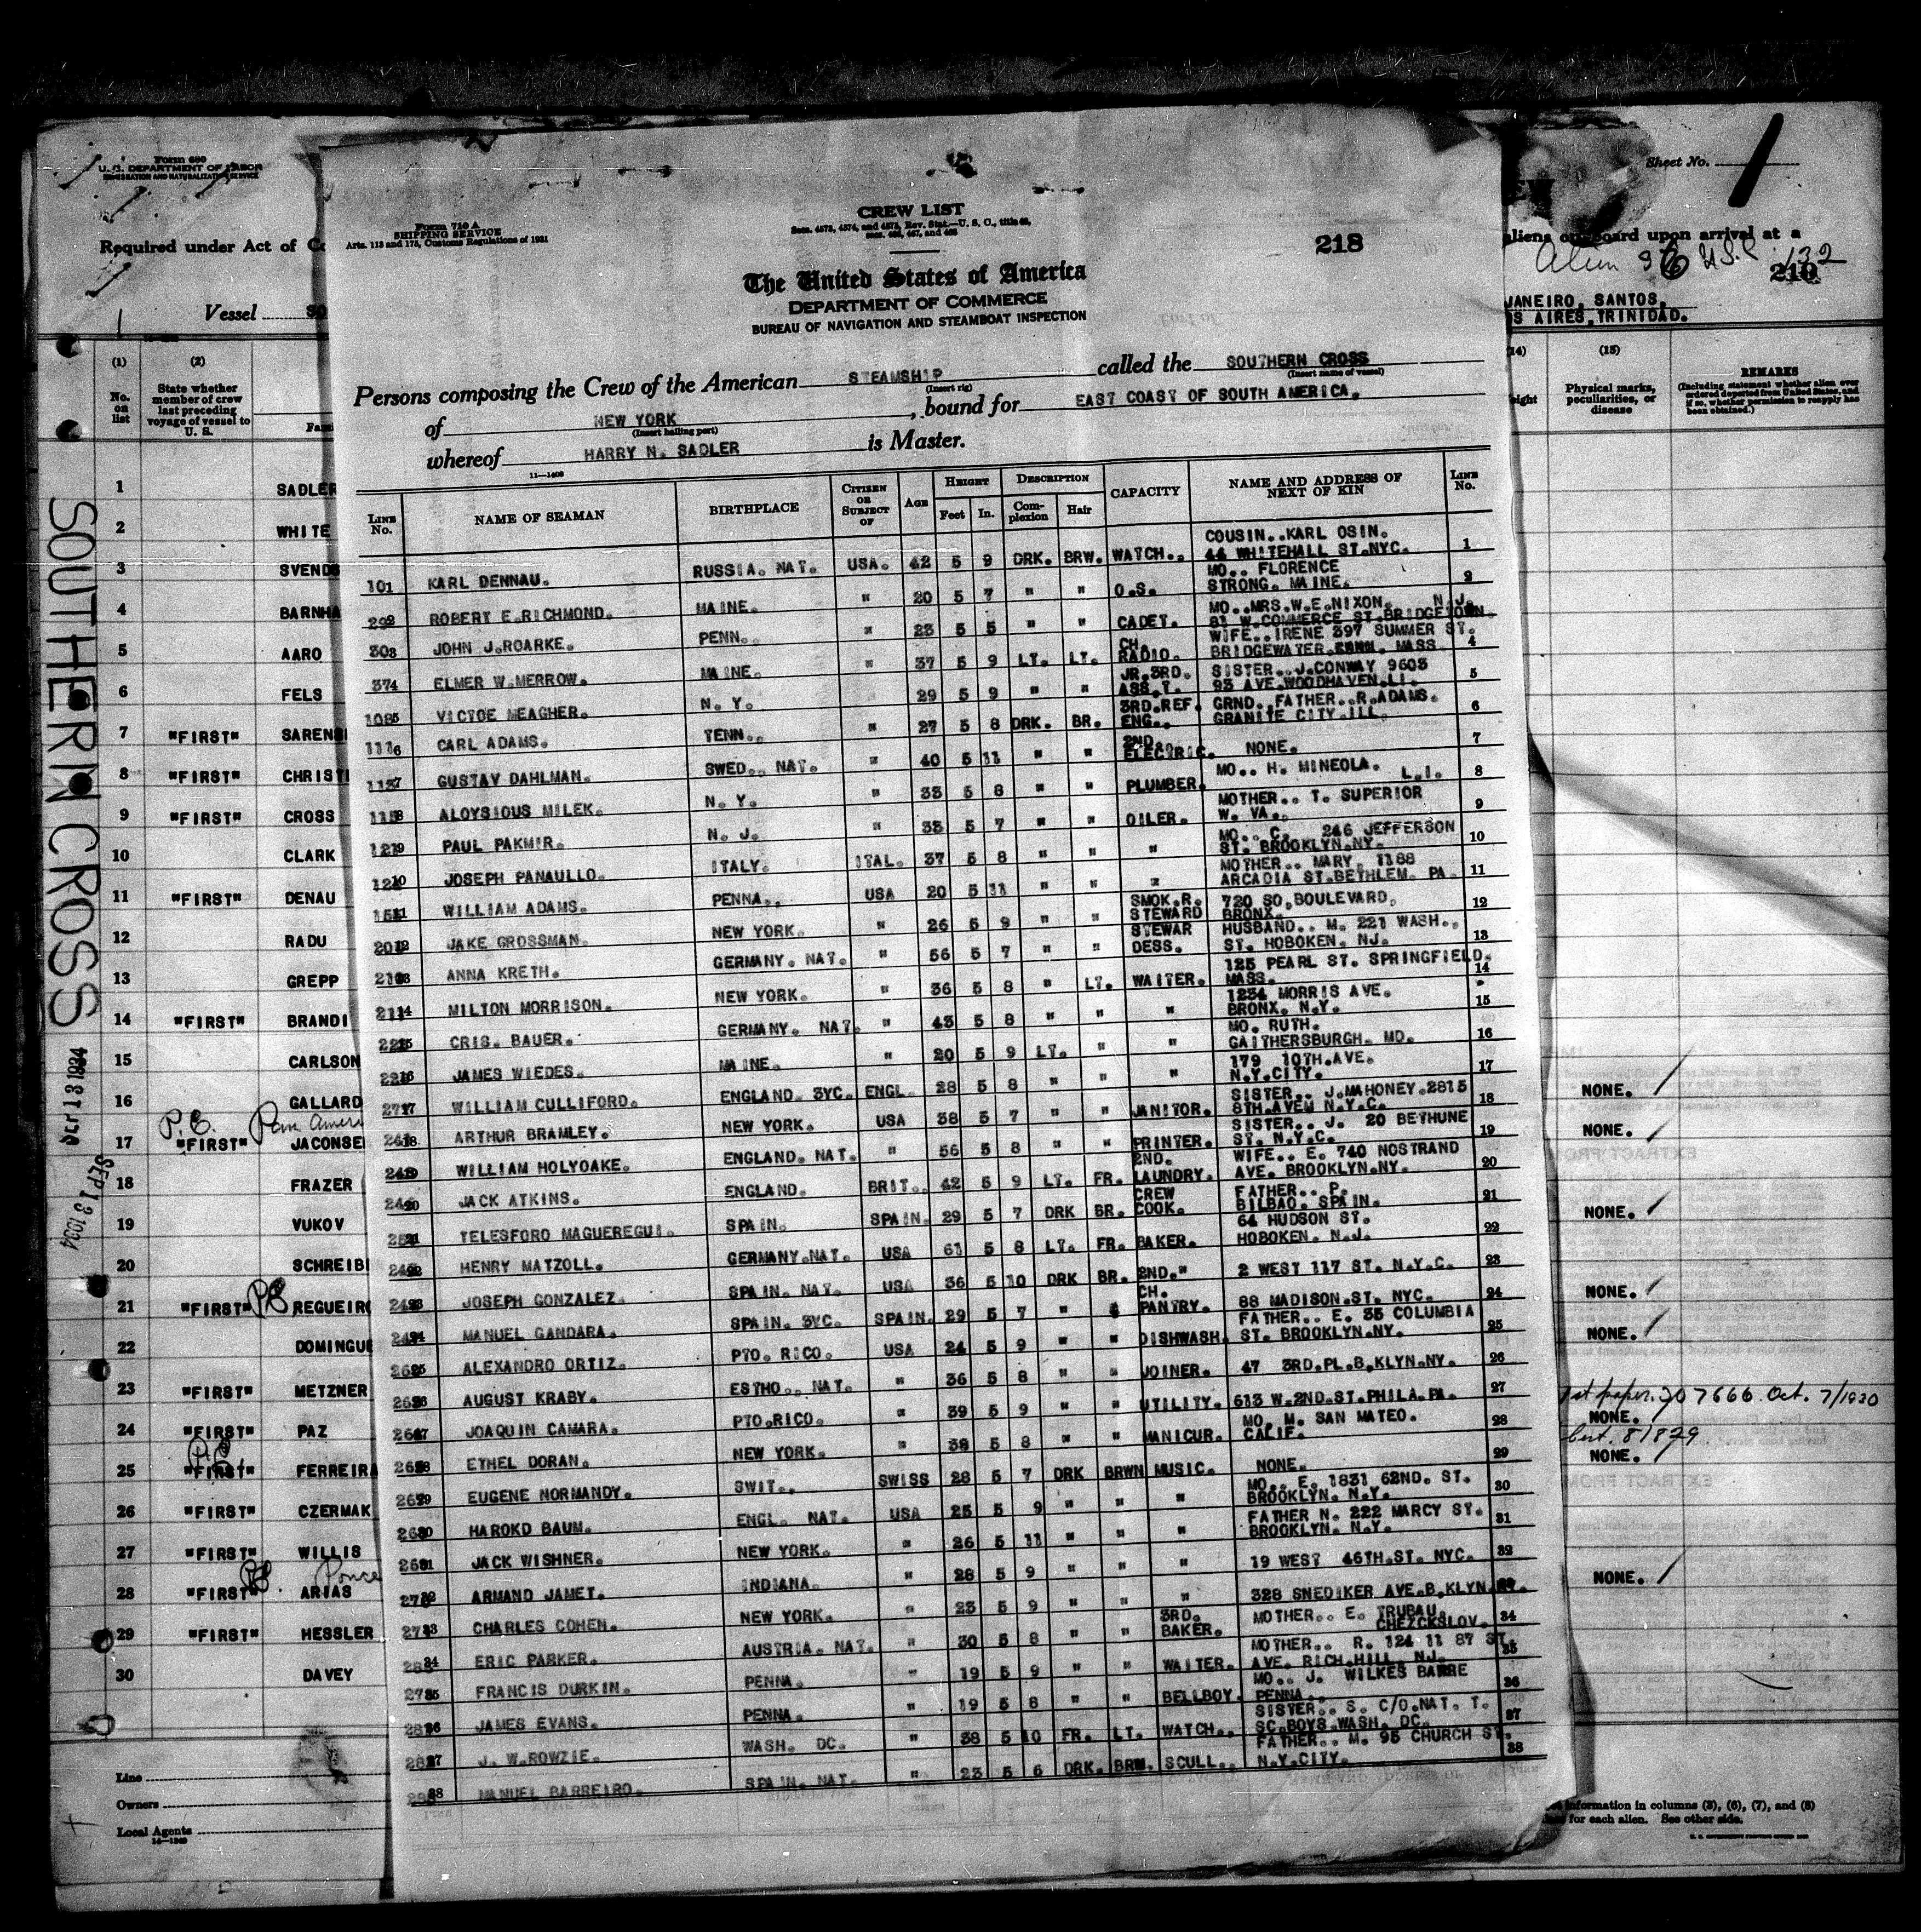 Form 680
U. S. DEPARTMENT OF LABOR
IMMIGRATION AND NATURALIZATION SERVICE
Required under Act of
Vessel
(1)
No. on list
(2)
State whether member of crew last preceding voyage of vessel to U. S.
1 SADLER
2 WHITE
3 SVENDS
4 BARNHA
5 AARO
6 FELS
7 "FIRST" SARENS
8 "FIRST" CHRISTI
9 "FIRST" CROSS
10 CLARK
11 "FIRST" DENAU
12 RADU
13 GREPP
14 "FIRST" BRANDI
15 CARLSON
16 GALLARD
P.E.
17 "FIRST" JACONSE
18 FRAZER
19 VUKOV
20 SCHREIB
21 "FIRST" REGUEIRO
22 DOMINGUE
23 "FIRST" METZNER
24 "FIRST" PAZ
25 "FIRST" FERREIRA
26 "FIRST" CZERMAK
27 "FIRST" WILLIS
Ponce
28 "FIRST" ARIAS
29 "FIRST" HESSLER
30 DAVEY
Line
Owners
Local Agents
SOUTHERN CROSS
SEP 13 1934
Form 710 A
SHIPPING SERVICE
Arts. 113 and 175, Customs Regulations of 1931
CREW LIST
218
The United States of America
DEPARTMENT OF COMMERCE
BUREAU OF NAVIGATION AND STEAMBOAT INSPECTION
Persons composing the Crew of the American STEAMSHIP called the SOUTHERN CROSS
(Insert rig) (Insert name of vessel)
of NEW YORK, bound for EAST COAST OF SOUTH AMERICA.
(Insert hailing port)
whereof HARRY N. SADLER is Master.
LINE No. NAME OF SEAMAN BIRTHPLACE CITIZEN OR SUBJECT OF AGE HEIGHT Feet In. DESCRIPTION Complexion Hair CAPACITY NAME AND ADDRESS OF NEXT OF KIN LINE No.
KARL DENNAU. RUSSIA. NAT. USA. 42 5 9 DRK. BRW. WATCH.. COUSIN..KARL OSIN. 44 WHITEHALL ST.NYC. 1
ROBERT E.RICHMOND. MAINE. " 20 5 7 " " O.S. MO.. FLORENCE STRONG. MAINE. 2
JOHN J.ROARKE. PENN. " 23 5 5 " " CADET. MO..MRS.W.E.NIXON. N.J. 81 W.COMMERCE ST.BRIDGETOWN.
ELMER W.MERROW. MAINE. " 37 5 9 LT. LT. CH. RADIO. WIFE..IRENE 397 SUMMER ST. BRIDGEWATER MASS 4
VICTOE MEAGHER. N. Y. " 29 5 9 " " JR.3RD. ASS.T. SISTER..J.CONWAY 9603 93 AVE.WOODHAVEN.LI. 5
CARL ADAMS. TENN.. " 27 5 8 DRK. BR. 3RD.REF. ENG.. GRND..FATHER..R.ADAMS. GRANITE CITY.ILL. 6
GUSTAV DAHLMAN. SWED.. NAT. " 40 5 11 " " 2ND. ELECTRIC. NONE. 7
ALOYSIOUS MILEK. N. Y. " 33 5 8 " " PLUMBER. MO.. H. MINEOLA. L.I. 8
PAUL PAKMIR. N. J. " 33 5 7 " " OILER. MOTHER.. T. SUPERIOR W. VA.. 9
JOSEPH PANAULLO. ITALY. ITAL. 37 5 8 " " " MO.. C. 246 JEFFERSON ST. BROOKLYN.NY. 10
WILLIAM ADAMS. PENNA.. USA 20 5 11 " " " MOTHER.. MARY. 1188 ARCADIA ST.BETHLEM. PA. 11
JAKE GROSSMAN. NEW YORK. " 26 5 9 " " SMOK.R. STEWARD 720 SO,BOULEVARD, BRONX. 12
ANNA KRETH. GERMANY. NAT. " 56 5 7 " " STEWAR DESS. HUSBAND.. M. 221 WASH.. ST. HOBOKEN. NJ. 13
MILTON MORRISON. NEW YORK. " 36 5 8 " LT. WAITER. 125 PEARL ST. SPRINGFIELD. MASS. 14
CRIS. BAUER. GERMANY. NAT. " 43 5 8 " " " 1234 MORRIS AVE. BRONX. N.Y. 15
JAMES WIEDES. MAINE. " 20 5 9 LT. " " MO. RUTH. GAITHERSBURGH. MD. 16
WILLIAM CULLIFORD. ENGLAND. 3YC. ENGL. 28 5 8 " " " 179 10TH.AVE. N.Y.CITY. 17
ARTHUR BRAMLEY. NEW YORK. USA 38 5 7 " " JANITOR. SISTER.. J.MAHONEY.2815 8TH.AVEM N.Y.C. 18
WILLIAM HOLYOAKE. ENGLAND. NAT. " 56 5 8 " " PRINTER. SISTER.. J. 20 BETHUNE ST. N.Y.C. 19
JACK ATKINS. ENGLAND. BRIT.. 42 5 9 LT. FR. 2ND. LAUNDRY. WIFE.. E. 740 NOSTRAND AVE. BROOKLYN.NY. 20
TELESFORD MAGUEREGUI. SPAIN. SPAIN. 29 5 7 DRK BR. CREW COOK. FATHER.. P. BILBAO. SPAIN. 21
HENRY MATZOLL. GERMANY.NAT. USA 61 5 8 LT. FR. BAKER. 64 HUDSON ST. HOBOKEN. N.J. 22
JOSEPH GONZALEZ. SPAIN. NAT. USA 36 5 10 DRK BR. 2ND." 2 WEST 117 ST. N.Y.C. 23
MANUEL GANDARA. SPAIN. 3YC. SPAIN. 29 5 7 " " CH. PANTRY. 88 MADISON.ST. NYC. 24
ALEXANDRO ORTIZ. PTO. RICO. USA 24 5 9 " " DISHWASH. FATHER.. E. 35 COLUMBIA ST. BROOKLYN.NY. 25
AUGUST KRABY. ESTHO.. NAT. " 36 5 8 " " JOINER. 47 3RD.PL.B.KLYN.NY. 26
JOAQUIN CAMARA. PTO.RICO. " 39 5 9 " " UTILITY. 613 W.2ND.ST.PHILA.PA. 27
ETHEL DORAN. NEW YORK. " 38 5 8 MANICUR. MO. M. SAN MATEO. CALIF. 28
EUGENE NORMANDY. SWIT.. SWISS 28 5 7 DRK BRWN MUSIC. NONE. 29
HAROKD BAUM. ENGL. NAT. USA 25 5 9 " " " MO.. E. 1831 62ND. ST. BROOKLYN. N.Y. 30
JACK WISHNER. NEW YORK. " 26 5 11 " " " FATHER N. 222 MARCY ST. BROOKLYN. N.Y. 31
ARMAND JAMET. INDIANA. " 28 5 9 " " " 19 WEST 46TH.ST. NYC. 32
CHARLES COHEN. NEW YORK. " 23 5 9 " " " 328 SNEDIKER AVE.B.KLYN.NY.
ERIC PARKER. AUSTRIA. NAT. " 30 5 8 " " 3RD. BAKER. MOTHER.. E. TRUBAU. CHEZCKSLOV. 34
FRANCIS DURKIN. PENNA. " 19 5 9 " " WAITER. MOTHER.. R. 124 11 87 ST. AVE. RICH.HILL. NJ. 35
JAMES EVANS. PENNA. " 19 5 8 " " BELLBOY. MO.. J. WILKES BARRE PENNA.. 36
J. W.ROWZIE. WASH. DC. " 38 5 10 FR. LT. WATCH.. SISTER.. S. C/O.NAT. T. SC.BOYS.WASH. DC. 37
MANUEL BARREIRO. SPAIN. NAT. " 23 5 6 DRK. BRW. SCULL.. FATHER.. M. 95 CHURCH ST. N.Y.CITY. 38
Sheet No. 1
aliens on board upon arrival at a
Alien 36 U.S.C 132
JANEIRO, SANTOS,
OS AIRES,TRINIDAD.
(14)
(15)
Physical marks, peculiarities, or disease
REMARKS
(Including statement whether alien ever ordered deported from United States, and if so, whether permission to reapply has been obtained.)
NONE.
NONE.
NONE.
NONE.
NONE.
1st paper. 307666. Oct. 7/1930
NONE.
Cert. 81829
NONE.
NONE.
information in columns (3), (6), (7), and (8)
for each alien. See other side.